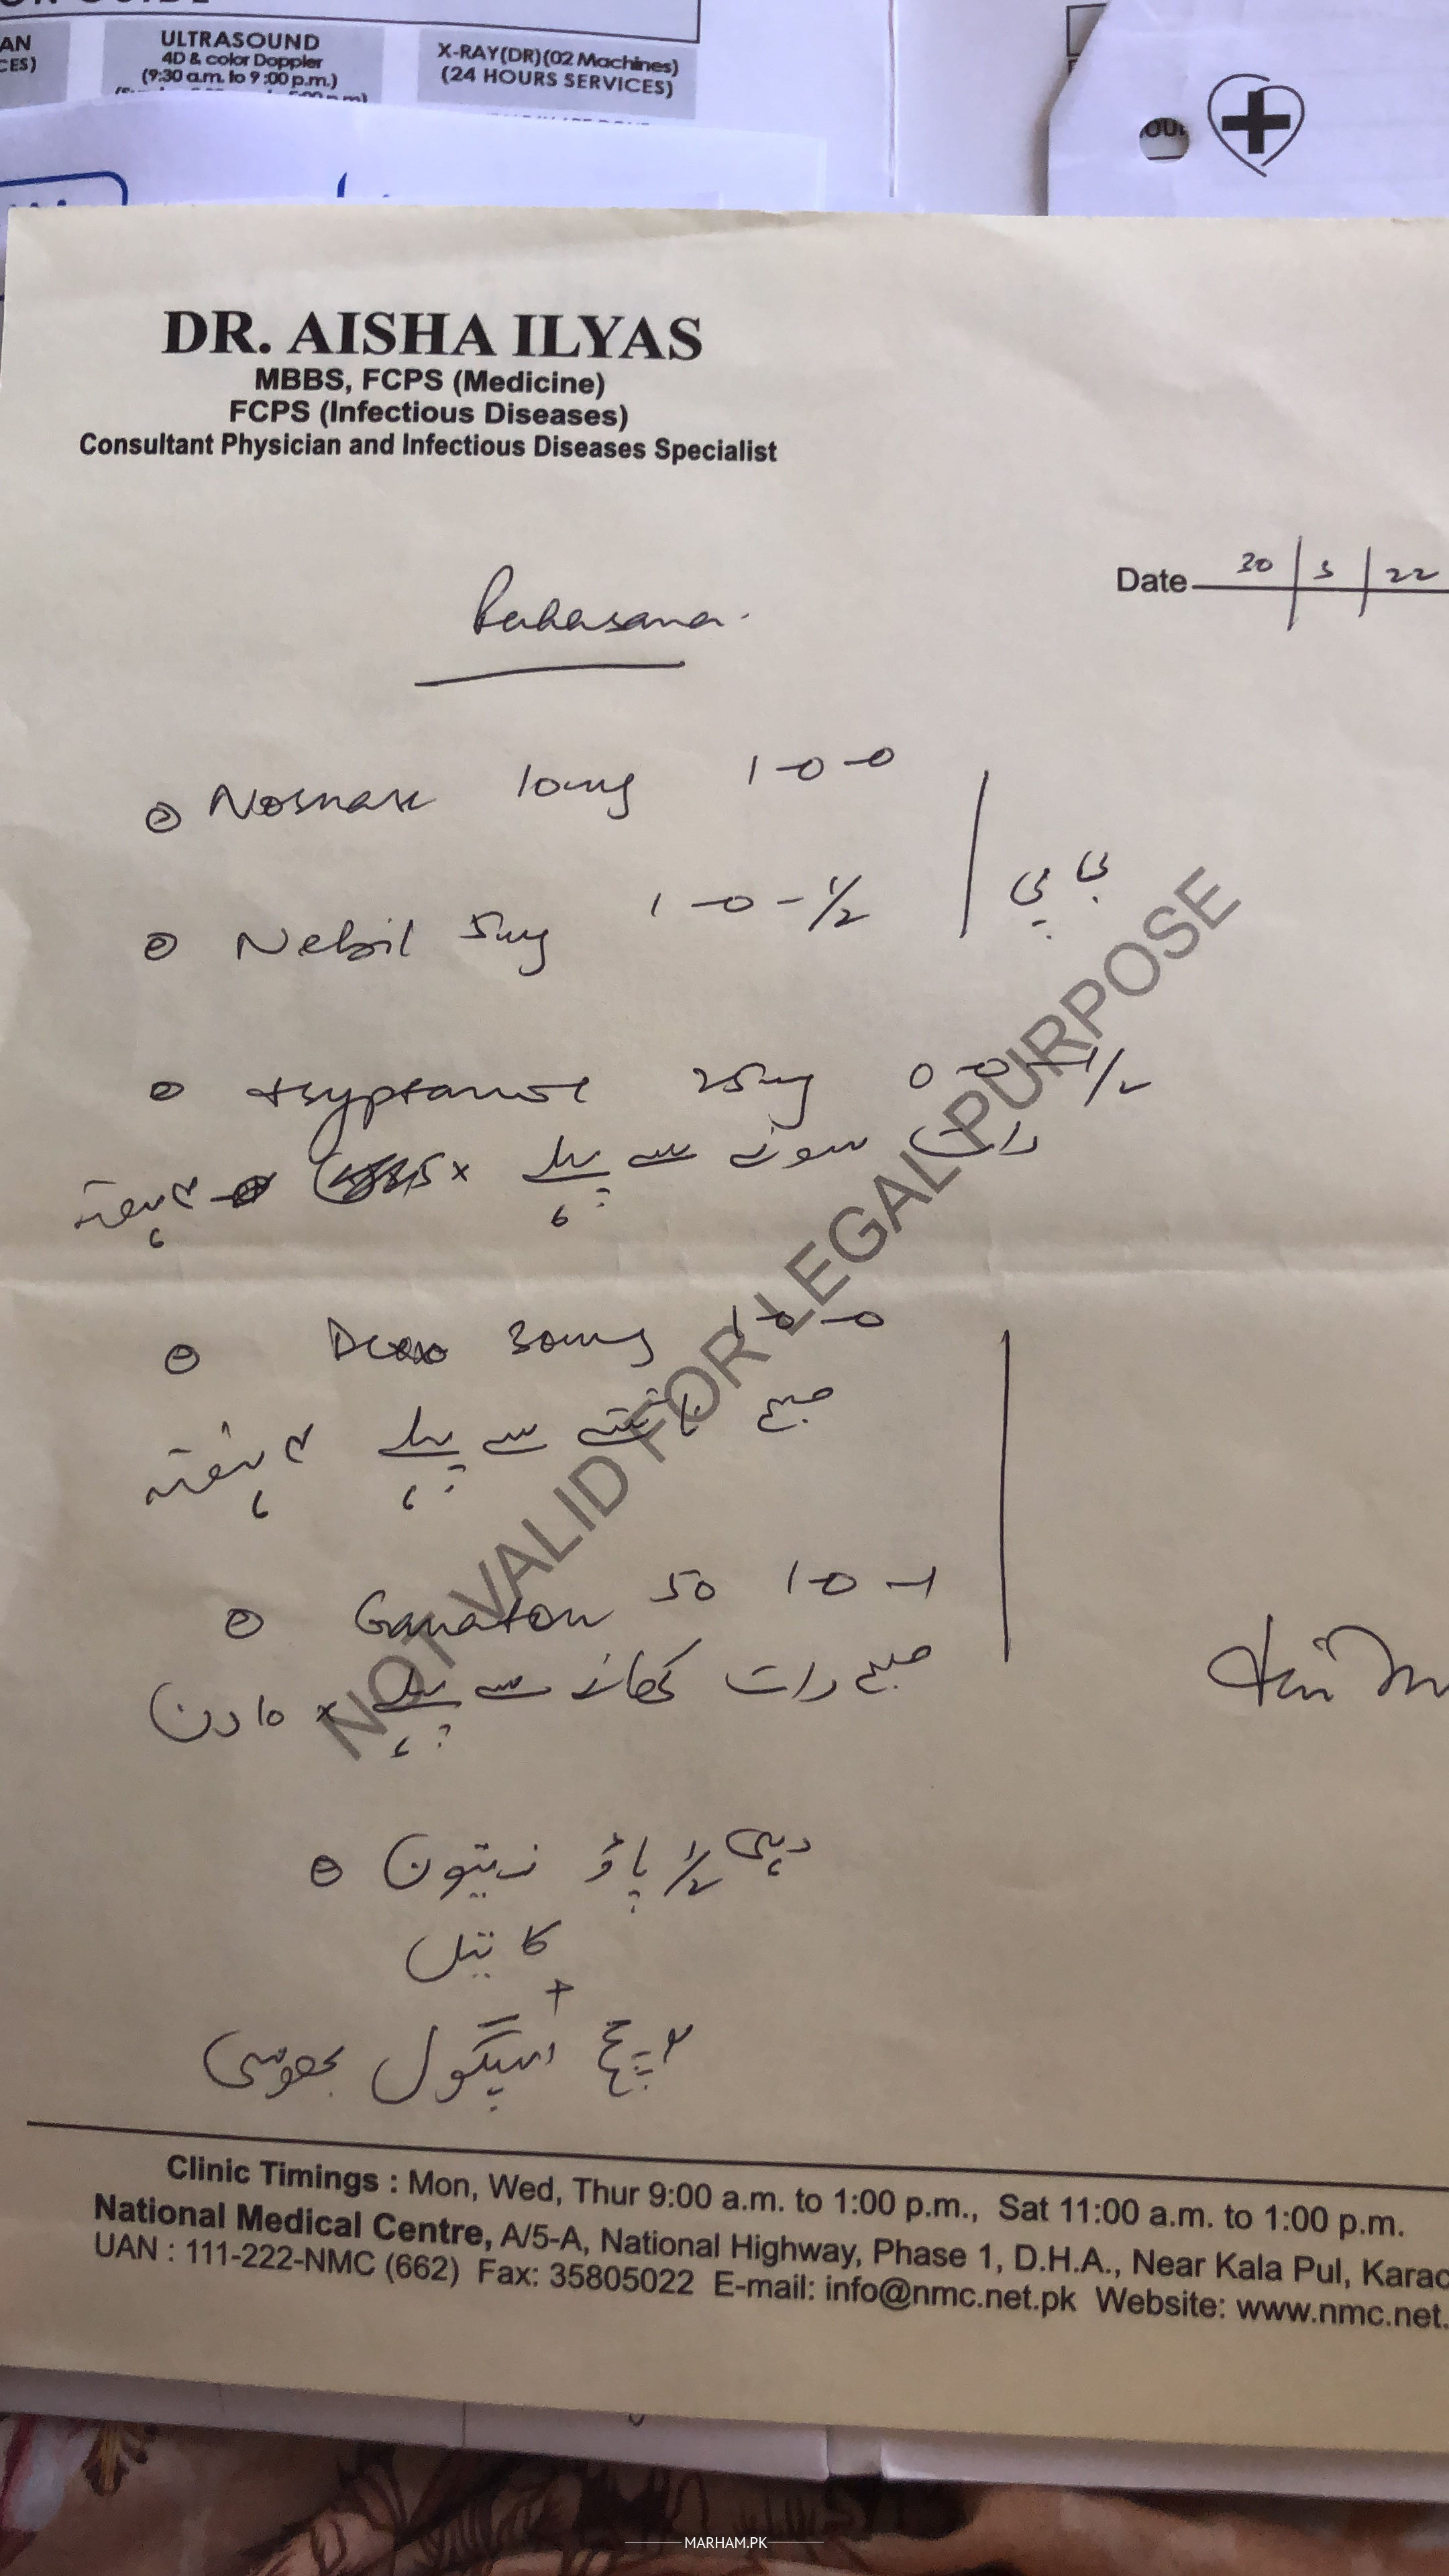 AN
CES)
ULTRASOUND
4D & color Doppler
(9:30 a.m. to 9:00 p.m.)
X-RAY(DR)(02 Machines)
(24 HOURS SERVICES)
DR. AISHA ILYAS
MBBS, FCPS (Medicine)
FCPS (Infectious Diseases)
Consultant Physician and Infectious Diseases Specialist
Date 30/5/22
10mg 1-0-0
Nebil 5mg 1-0-1/2
بی پی
25mg 0-0-1/2
رات سونے سے پہلے x ۴ ہفتہ
30mg 1-0-0
صبح ناشتے سے پہلے ۴ ہفتہ
Ganaton 50 1-0-1
صبح رات کھانے سے پہلے x ۱۰ دن
دہی 1/2 پاؤ زیتون
کا تیل
+
۲ چمچ اسپگول بھوسی
NOT VALID FOR LEGAL PURPOSE
Clinic Timings : Mon, Wed, Thur 9:00 a.m. to 1:00 p.m., Sat 11:00 a.m. to 1:00 p.m.
National Medical Centre, A/5-A, National Highway, Phase 1, D.H.A., Near Kala Pul, Karac
UAN : 111-222-NMC (662) Fax: 35805022 E-mail: info@nmc.net.pk Website: www.nmc.net.
MARHAM.PK